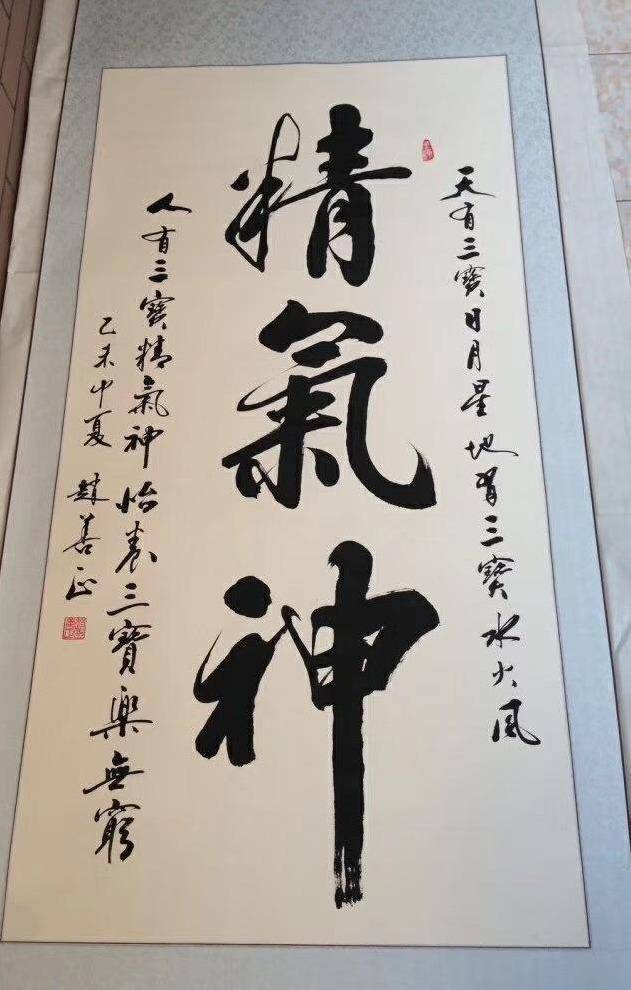 天有三寶日月星地有三寶水火風
精氣神
人有三寶精氣神怡養三寶樂無窮
乙未中夏 趙善正